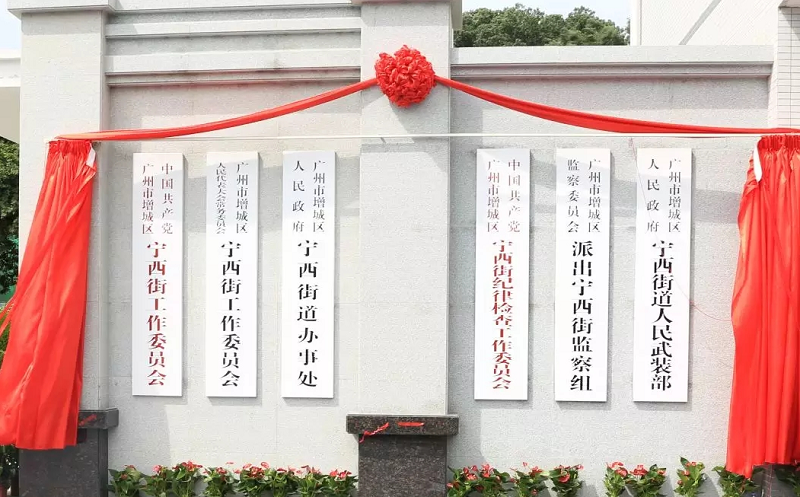 中国共产党
广州市增城区
宁西街工作委员会
广州市增城区
人民代表大会常务委员会
宁西街工作委员会
广州市增城区
人民政府
宁西街道办事处
中国共产党
广州市增城区
宁西街纪律检查工作委员会
广州市增城区
监察委员会
派出宁西街监察组
广州市增城区
人民政府
宁西街道人民武装部